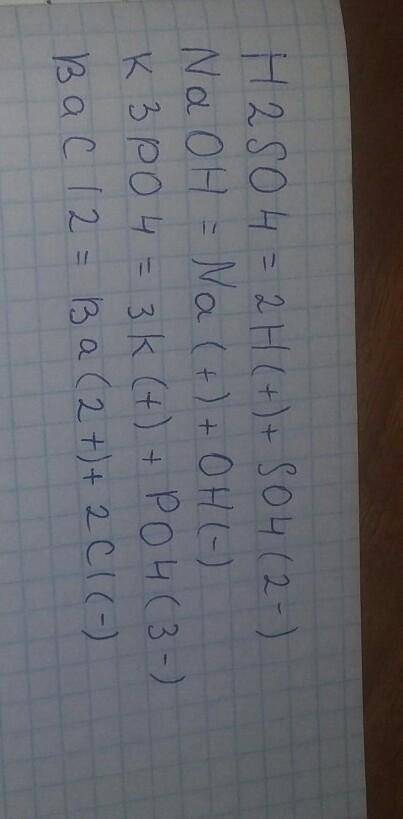 H2SO4 = 2H(+) + SO4(2-)
NaOH = Na(+) + OH(-)
K3PO4 = 3K(+) + PO4(3-)
BaCl2 = Ba(2+) + 2Cl(-)